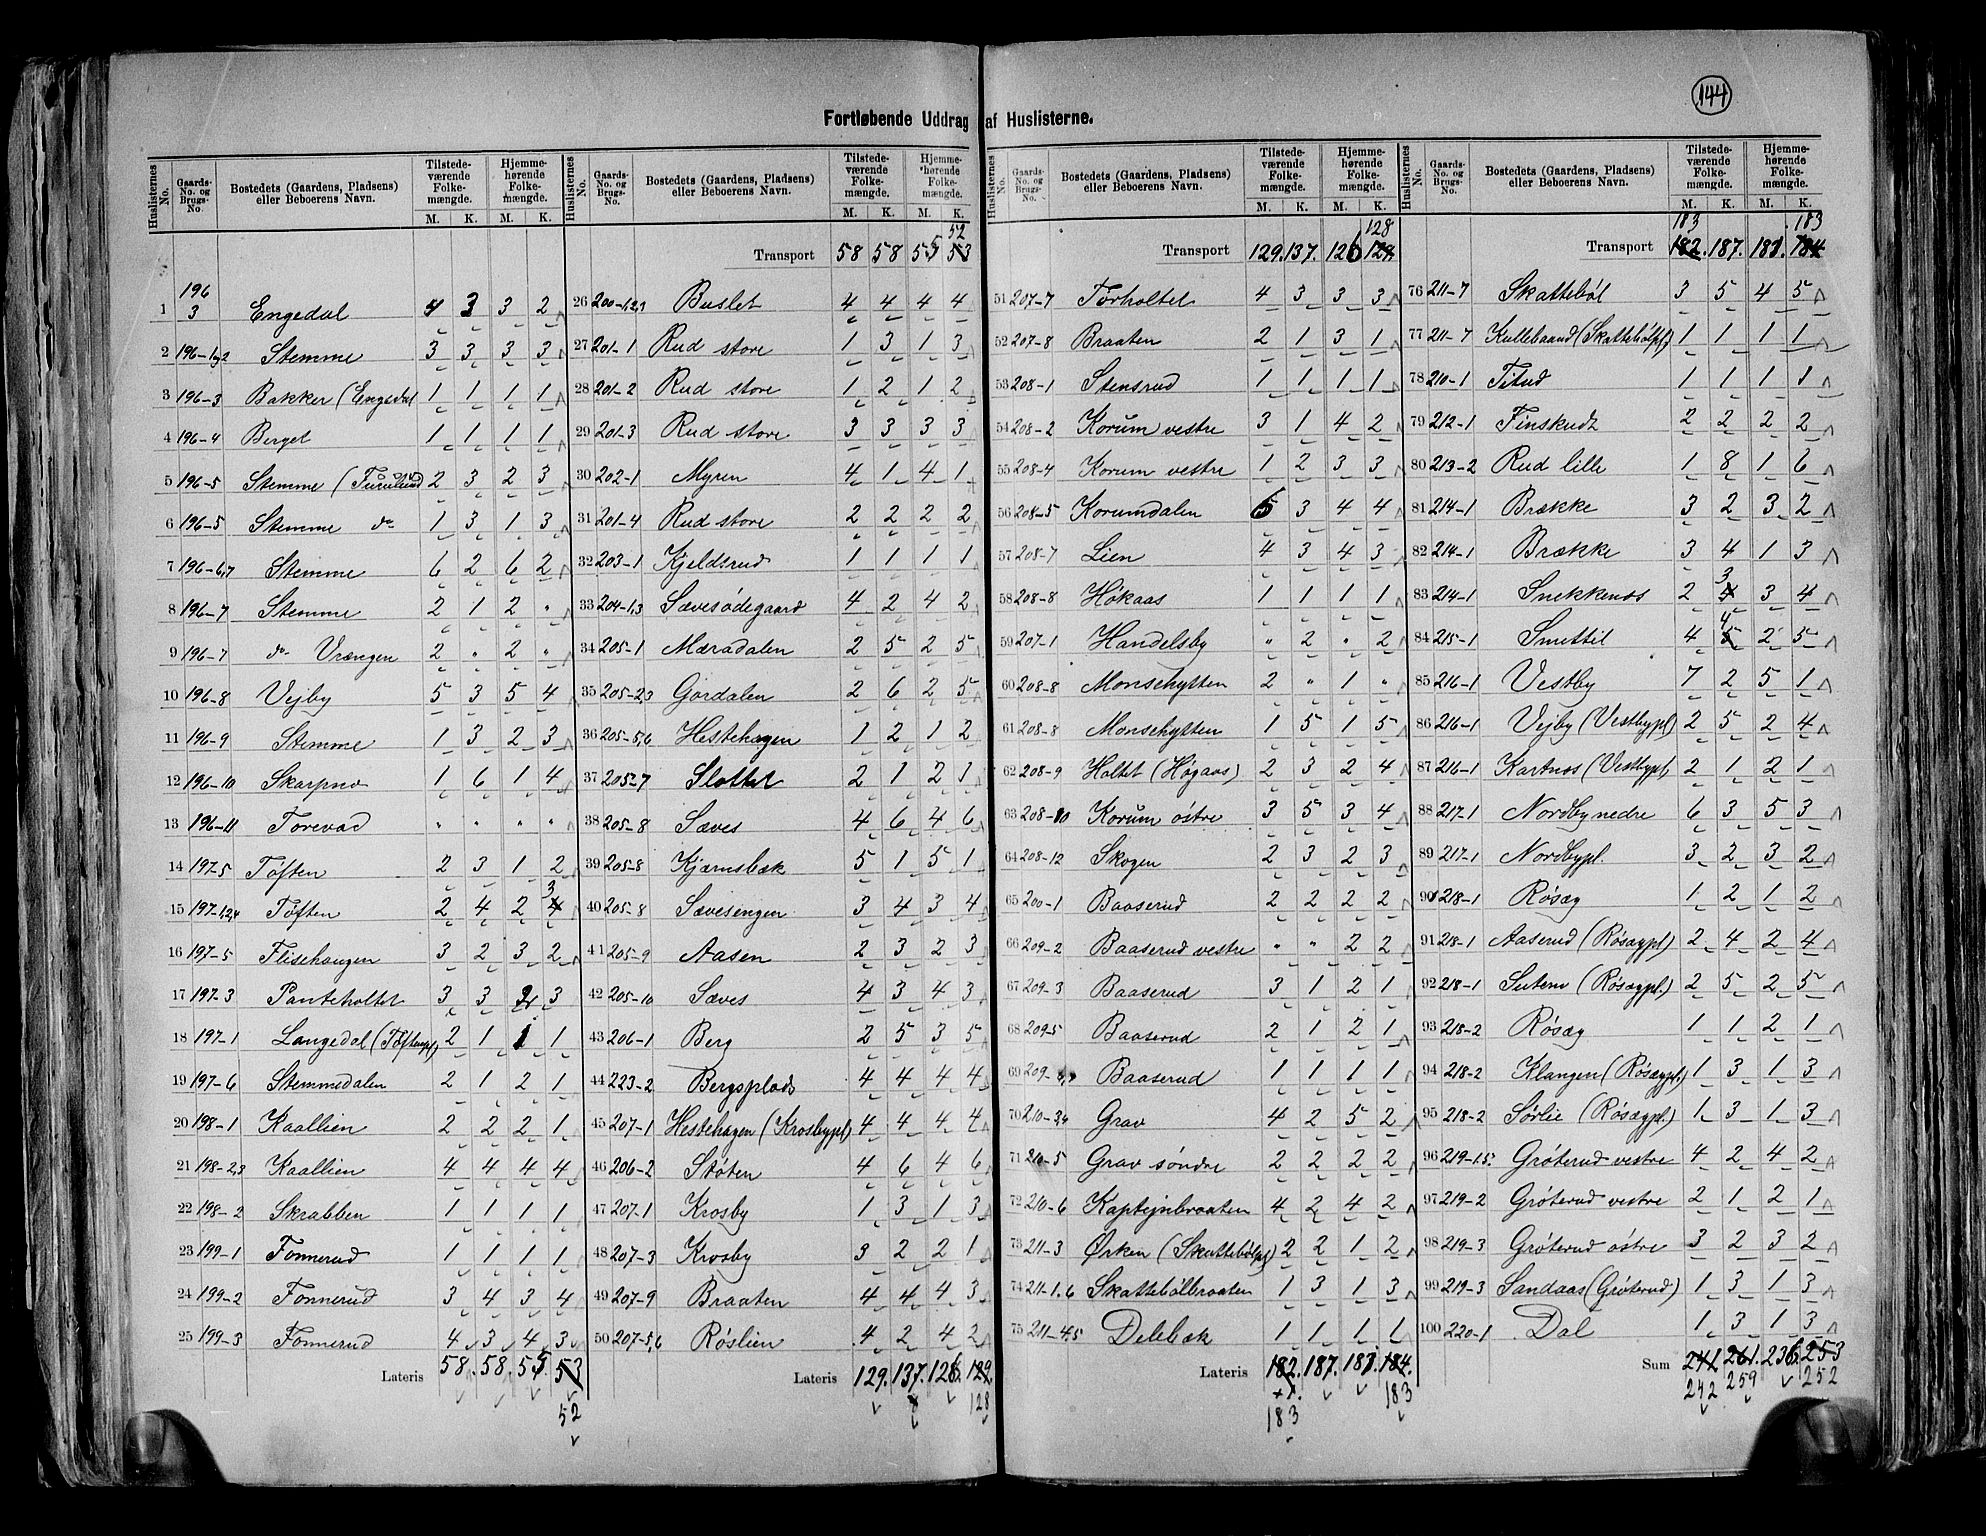 144
Fortløbende Uddrag af Huslisterne.
Huslisternes No. Gaards-No. og Brugs-No. Bostedets (Gaarden, Pladsens) eller Beboerens Navn. Tilstedeværende Folkemængde. M. K. Hjemmehørende Folkemængde. M. K.
1 196 3 Engedal 4 3 3 2
2 196-1og2 Stemme 3 3 3 3
3 196-3 Bakker (Engedal 1 1 1 1
4 196-4 Berget 1 1 1 1
5 196-5 Stemme (Furulund 2 3 2 3
6 196-5 Stemme do 1 3 1 3
7 196-6,7 Stemme 6 2 6 2
8 196-7 Stemme 2 1 2 "
9 196-7 do Vrængen 2 " 2 "
10 196-8 Vejby 5 3 5 4
11 196-9 Stemme 1 3 2 3
12 196-10 Skarpno 1 6 1 4
13 196-11 Torevad " " " "
14 197-5 Tøften 2 3 1 2
15 197-1,2,4 Tøften 2 4 2 4 3
16 197-5 Flisehaugen 3 2 3 2
17 197-3 Panteholtet 3 3 2 3
18 197-1 Langedal (Tøftenpl) 2 1 1 1
19 197-6 Stemmedalen 2 1 2 1
20 198-1 Kaallien 2 2 2 1
21 198-2,3 Kaallien 4 4 4 4
22 198-2 Skrabben 1 1 1 1
23 199-1 Fonnerud 1 1 1 1
24 199-2 Fonnerud 3 4 3 4
25 199-3 Fonnerud 4 3 4 3
Lateris 58. 58. 55 53
52
Huslisternes No. Gaards-No. og Brugs-No. Bostedets (Gaarden, Pladsens) eller Beboerens Navn. Tilstedeværende Folkemængde. M. K. Hjemmehørende Folkemængde. M. K.
52
Transport 58 58 55 53
26 200-1,2,1 Buslet 4 4 4 4
27 201-1 Rud store 1 3 1 3
28 201-2 Rud store 1 2 1 2
29 201-3 Rud store 3 3 3 3
30 202-1 Myren 4 1 4 1
31 201-4 Rud store 2 2 2 2
32 203-1 Kjeldsrud 1 1 1 1
33 204-1,3 Sævesødegaard 4 2 4 2
34 205-1 Mæradalen 2 5 2 5
35 205-2,3 Gordalen 2 6 2 5
36 205-5,6 Hestehagen 1 2 1 2
37 205-7 Slottet 2 1 2 1
38 205-8 Sæves 4 6 4 6
39 205-8 Kjærnsbæk 5 1 5 1
40 205-8 Sævesengen 3 4 3 4
41 205-9 Aasen 2 3 2 3
42 205-10 Sæves 4 3 4 3
43 206-1 Berg 2 5 3 5
44 223-2 Bergsplads 4 4 4 4
45 207-1 Hestehagen (Krosbypl) 4 4 4 4
46 206-2 Støten 4 6 4 6
47 207-1 Krosby 1 3 1 3
48 207-3 Krosby 3 2 2 1
49 207-9 Braaten 4 4 4 3
50 207-5,6 Røslien 4 2 4 2
Lateris 129. 137. 126. 129
128
Huslisternes No. Gaards-No. og Brugs-No. Bostedets (Gaarden, Pladsens) eller Beboerens Navn. Tilstedeværende Folkemængde. M. K. Hjemmehørende Folkemængde. M. K.
128
Transport 129. 137. 126 129
51 207-7 Torholtet 4 3 3 3
52 207-8 Braaten 2 1 3 1
53 208-1 Stensrud 1 1 1 1
54 208-2 Korum vestre 3 1 4 2
55 208-4 Korum vestre 1 2 3 3
56 208-5 Korumdalen 6 3 4 4
57 208-7 Lien 4 3 4 3
58 208-8 Høkaas 1 1 1 1
59 207-1 Handelsby " 2 " 2
60 208-8 Monsehytten 2 " 1 "
61 208-8 Monsehytten 1 5 1 5
62 208-9 Holtet (Høgaas) 2 3 2 4
63 208-10 Korum østre 3 5 3 4
64 208-12 Skogen 2 3 2 3
65 200-1 Baaserud 2 2 2 2
66 209-2 Baaserud vestre " " 2 2
67 209-3 Baaserud 3 1 2 1
68 209-5 Baaserud 2 1 2 1
69 209- Baaserud 1 1 1 1
70 210-3,4 Grav 4 2 5 2
71 210-5 Grav søndre 2 2 2 2
72 210-6 Kaptejnbraaten 4 2 4 2
73 211-3 Ørken (Skattebølpl) 2 2 1 2
74 211-1.6 Skattebølbraaten 1 3 1 3
75 211-4.5 Delebæk 1 1 1 1
Lateris 182. 187. 183. 184.
+1. 183
183
Huslisternes No. Gaards-No. og Brugs-No. Bostedets (Gaarden, Pladsens) eller Beboerens Navn. Tilstedeværende Folkemængde. M. K. Hjemmehørende Folkemængde. M. K.
183 183
Transport 182. 187. 181. 184
76 211-7 Skattebøl 3 5 4 5
77 211-7 Kullebaand (Skattebølpl.) 1 1 1 1
78 210-1 Titud 1 1 1 1
79 212-1 Finskudt 2 2 2 2
80 213-2 Rud lille 1 8 1 6
81 214-1 Brække 3 2 3 2
82 214-1 Brække 3 4 1 3
83 214-1 Snekkenes 2 4 3 3 4
84 215-1 Smettil 4 5 4 2 5
85 216-1 Vestby 7 2 5 1
86 216-1 Vejby (Vestbypl) 2 5 2 4
87 216-1 Kartnos (Vestbypl 2 1 2 1
88 217-1 Nordby nedre 6 3 5 3
89 217-1 Nordbypl. 3 2 3 2
90 218-1 Røsæg 1 2 1 2
91 218-1 Aaserud (Røsægpl) 2 4 2 4
92 218-1 Sutern (Røsægpl.) 2 5 2 5
93 218-2 Røsæg 1 1 2 1
94 218-2 Klangen (Røsægpl.) 1 3 1 3
95 218-2 Sørlie (Røsægpl.) 1 3 1 3
96 219-1.5. Grøterud vestre 4 2 4 2
97 219-2 Grøterud vestre 2 1 2 1
98 219-3 Grøterud østre 3 2 3 2
99 219-3 Sandaas (Grøterud) 1 3 1 3
100 220-1 Dal 1 3 1 3
Sum 241. 261. 236. 253
242 259 252